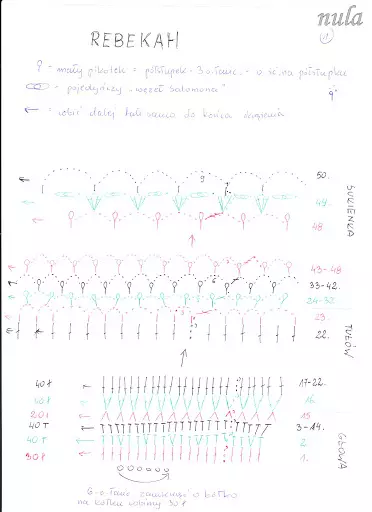 nula
1
REBEKAH
- mały pikotek = półsłupek - 3 o. łańc. - o śc. na półsłupku
- pojedyńczy "węzeł Salomona"
- robić dalej tak samo do końca okrążenia
50.
9
49.
48
SUKIENKA
43-48
33-42.
24-32
23
22.
TUŁÓW
40 ł
17-22.
16
20 ł
15
40 T
3-14.
40 T
2
30 P
1.
GŁOWA
6 o. łańc zamknięte o kółko
na kółku robimy 30 P